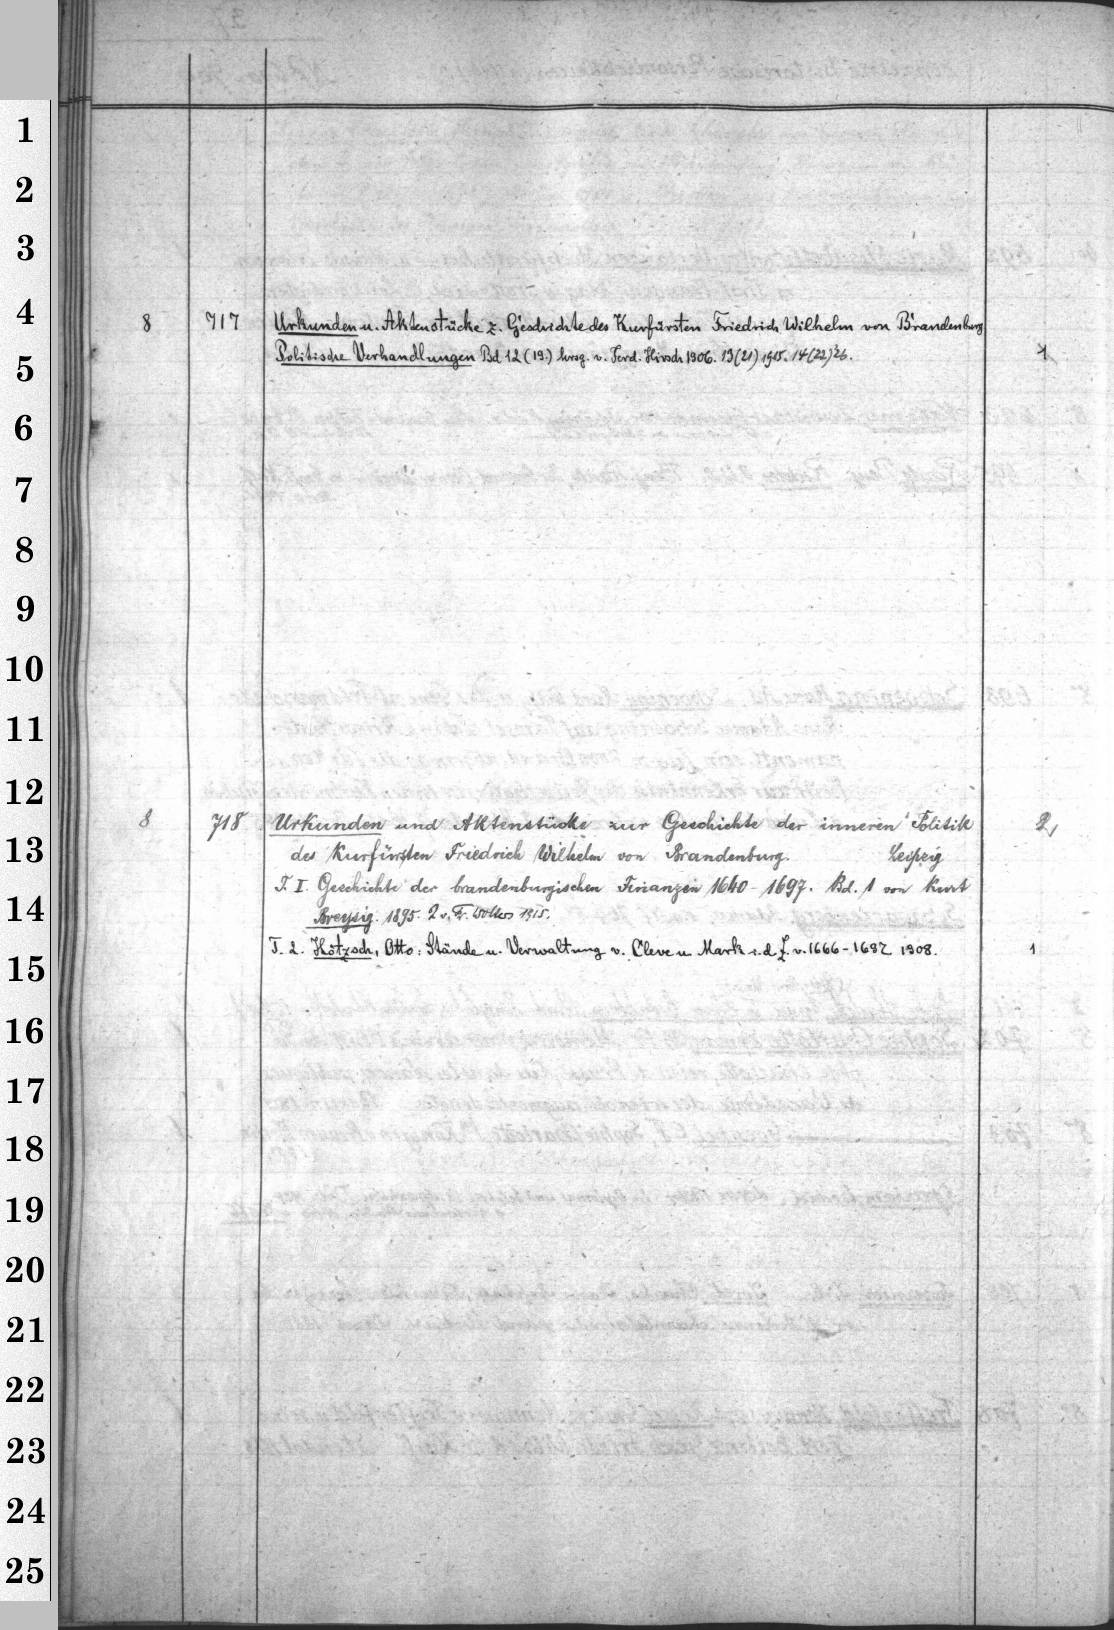 1
2
3
4
5
6
7
8
9
10
11
12
13
14
15
16
17
18
19
20
21
22
23
24
25
8 717 Urkunden u. Aktenstücke z. Geschichte des Kurfürsten Friedrich Wilhelm von Brandenburg
Politische Verhandlungen Bd 12 (19.) hrsg. v. Ferd. Hirsch 1906. 13(21) 1915. 14(22) 26. 1
8 718 Urkunden und Aktenstücke zur Geschichte der inneren Politik 2,
des Kurfürsten Friedrich Wilhelm von Brandenburg. Leipzig
T. I. Geschichte der brandenburgischen Finanzen 1640 - 1697. Bd. 1 von Kurt
Breysig. 1895. 2 v. Fr. Wolters 1915.
T. 2. Hötzsch, Otto: Stände u. Verwaltung v. Cleve u. Mark i. d. Z. v. 1666 - 1697 1908. 1